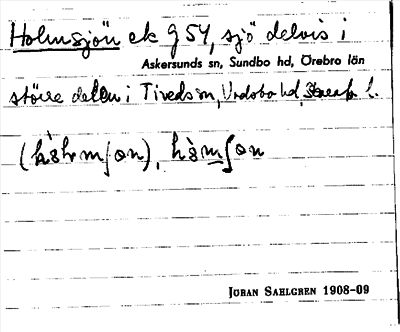 Holmsjön ek 9 54, sjö delvis i
Askersunds sn, Sundbo hd, Örebro län
större delen i Tiveds sn, Vadsbo hd, Skarab. l.
(hòlmʃon), hòmʃon
JÖRAN SAHLGREN 1908-09